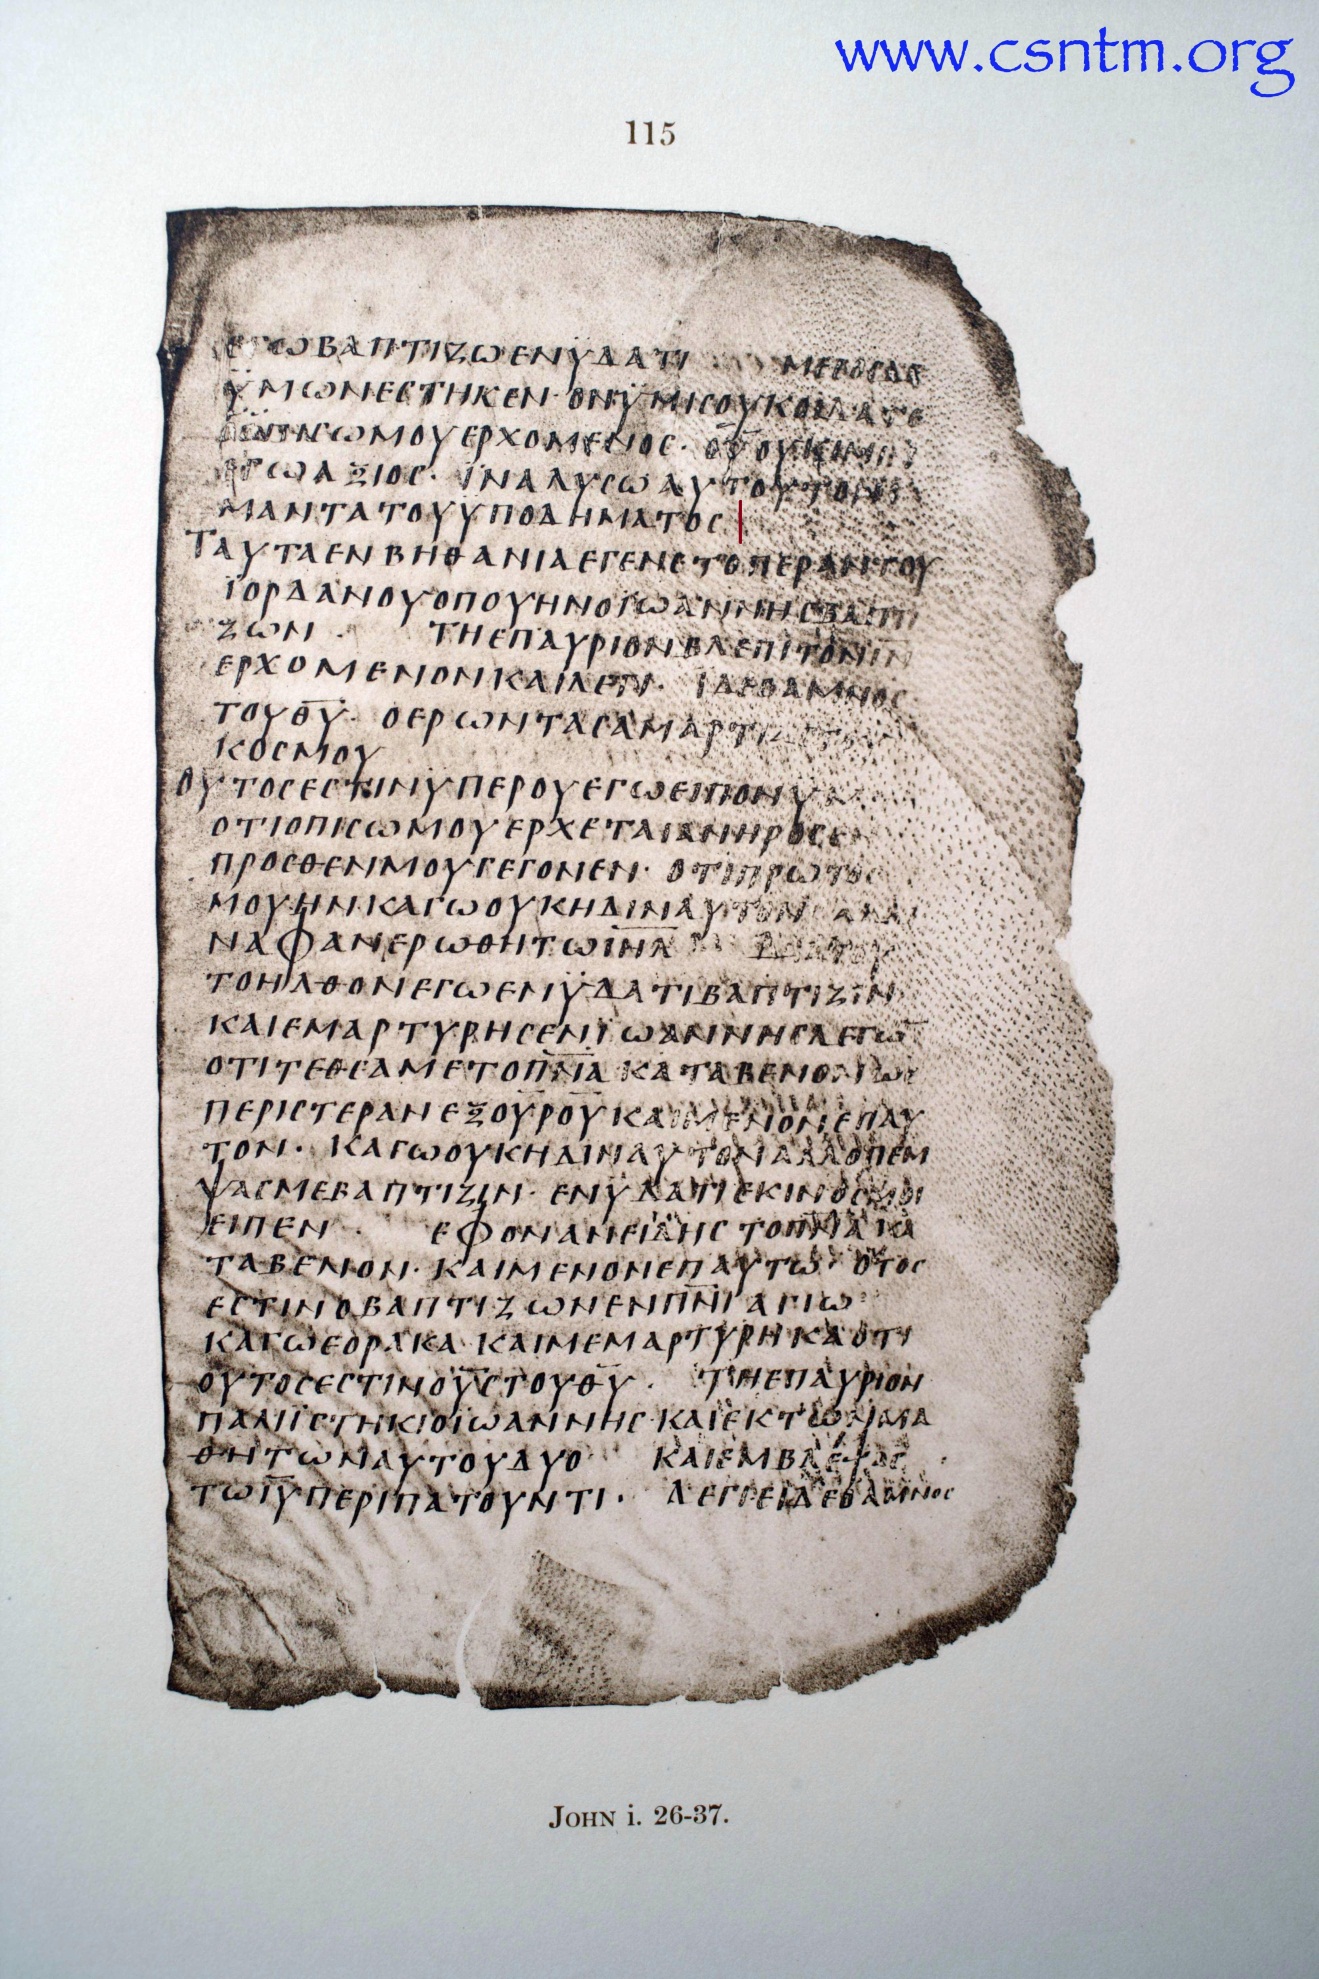 www.csntm.org
115
ΕΓΩΒΑΠΤΙΖΩΕΝΫΔΑΤΙ ΜΕΣΟΣΔΕ
ΫΜΩΝΕϹΤΗΚΕΝ· ΟΝΫΜΙϹΟΥΚΟΙΔΑΤΕ
ΟΠΙϹΩΜΟΥΕΡΧΟΜΕΝΟϹ· ΟΥ̅ΟΥΚΙΜΙ
ΕΓΩΑΞΙΟϹ· ΪΝΑΛΥϹΩΑΥΤΟΥΤΟΝΙ
ΜΑΝΤΑΤΟΥΫΠΟΔΗΜΑΤΟϹ
ΤΑΥΤΑΕΝΒΗΘΑΝΙΑΕΓΕΝΕΤΟΠΕΡΑΝΤΟΥ
ΪΟΡΔΑΝΟΥΟΠΟΥΗΝΟΪΩΑΝΝΗϹΒΑΠΤΙ
ΖΩΝ· ΤΗΕΠΑΥΡΙΟΝΒΛΕΠΙΤΟΝΙΝ̅
ΕΡΧΟΜΕΝΟΝΚΑΙΛΕΓΙ· ΙΔΕΟΑΜΝΟϹ
ΤΟΥΘΥ̅· ΟΕΡΩΝΤΑϹΑΜΑΡΤΙ
ΚΟϹΜΟΥ
ΟΥΤΟϹΕϹΤΙΝΥΠΕΡΟΥΕΓΩΕΙΠΟΝΥ
ΟΤΙΟΠΙϹΩΜΟΥΕΡΧΕΤΑΙΑΝΗΡΟϹΕΝ
ΠΡΟϹΘΕΝΜΟΥΓΕΓΟΝΕΝ· ΟΤΙΠΡΩΤΟϹ
ΜΟΥΗΝΚΑΓΩΟΥΚΗΔΙΝΑΥΤΟΝ ΑΛΛΙ
ΝΑΦΑΝΕΡΩΘΗΤΩΙΗΛ̅ ΔΙΑΤΟΥ
ΤΟΗΛΘΟΝΕΓΩΕΝΫΔΑΤΙΒΑΠΤΙΖΙΝ
ΚΑΙΕΜΑΡΤΥΡΗϹΕΝΪΩΑΝΝΗϹΛΕΓΩ̅
ΟΤΙΤΕΘΕΑΜΕΤΟΠΝΑ̅ΚΑΤΑΒΕΝΟΝΩϹ
ΠΕΡΙϹΤΕΡΑΝΕΞΟΥ̅ΡΟΥ̅ΚΑΙΜΕΝΟΝΕΠΑΥ
ΤΟΝ· ΚΑΓΩΟΥΚΗΔΙΝΑΥΤΟΝΑΛΛΟΠΕΜ
ΨΑϹΜΕΒΑΠΤΙΖΙΝ· ΕΝΫΔΑΤΙΕΚΙΝΟϹΜΟΙ
ΕΙΠΕΝ· ΕΦΟΝΑΝΕΙΔΗϹΤΟΠΝΑ̅ΚΑ
ΤΑΒΕΝΟΝ· ΚΑΙΜΕΝΟΝΕΠΑΥΤΩ· ΟΤΟϹ
ΕϹΤΙΝΟΒΑΠΤΙΖΩΝΕΝΠΝΙ̅ΑΓΙΩ
ΚΑΓΩΕΟΡΑΚΑ ΚΑΙΜΕΜΑΡΤΥΡΗΚΑΟΤΙ
ΟΥΤΟϹΕϹΤΙΝΟΥϹ̅ΤΟΥΘΥ̅· ΤΗΕΠΑΥΡΙΟΝ
ΠΑΛΙΪϹΤΗΚΙΟΪΩΑΝΝΗϹ·ΚΑΙΕΚΤΩΝΜΑ
ΘΗΤΩΝΑΥΤΟΥΔΥΟ ΚΑΙΕΜΒΛΕΨΑϹ
ΤΩΙΥ̅ΠΕΡΙΠΑΤΟΥΝΤΙ· ΛΕΓΙΕΙΔΕΟΑΜΝΟϹ
JOHN i. 26-37.